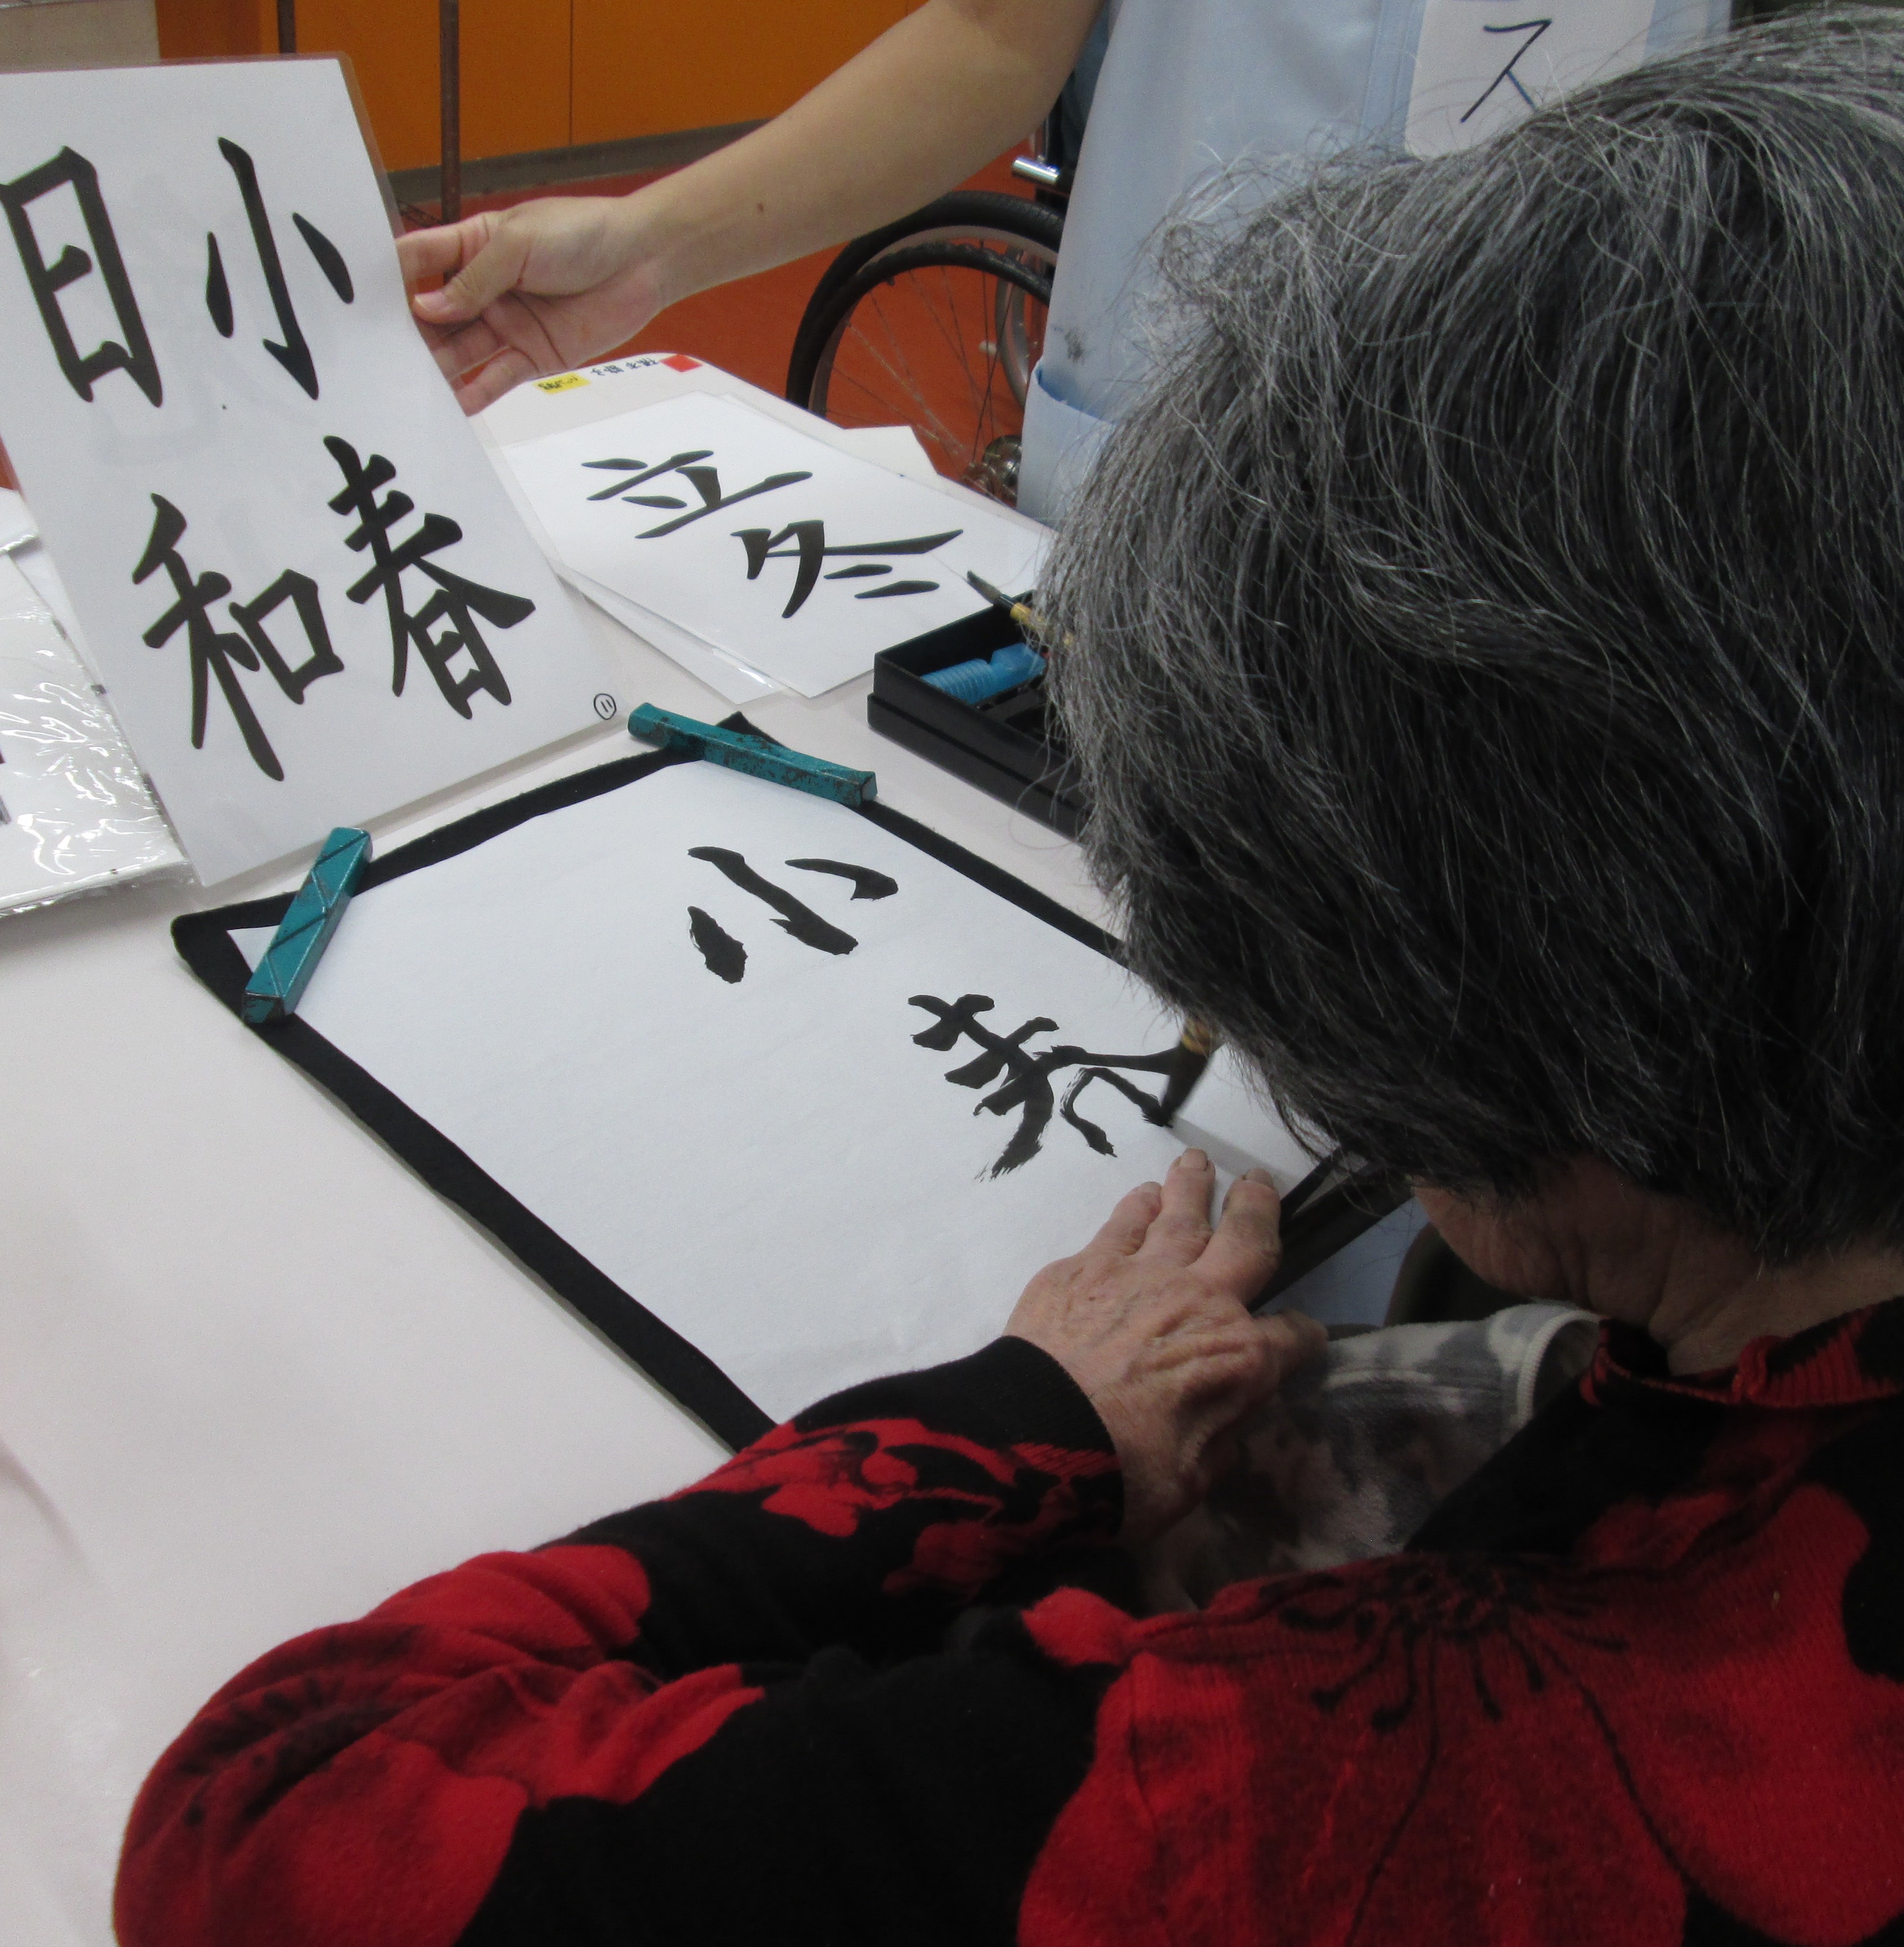 小春
日和
⑪
立冬
小
ス